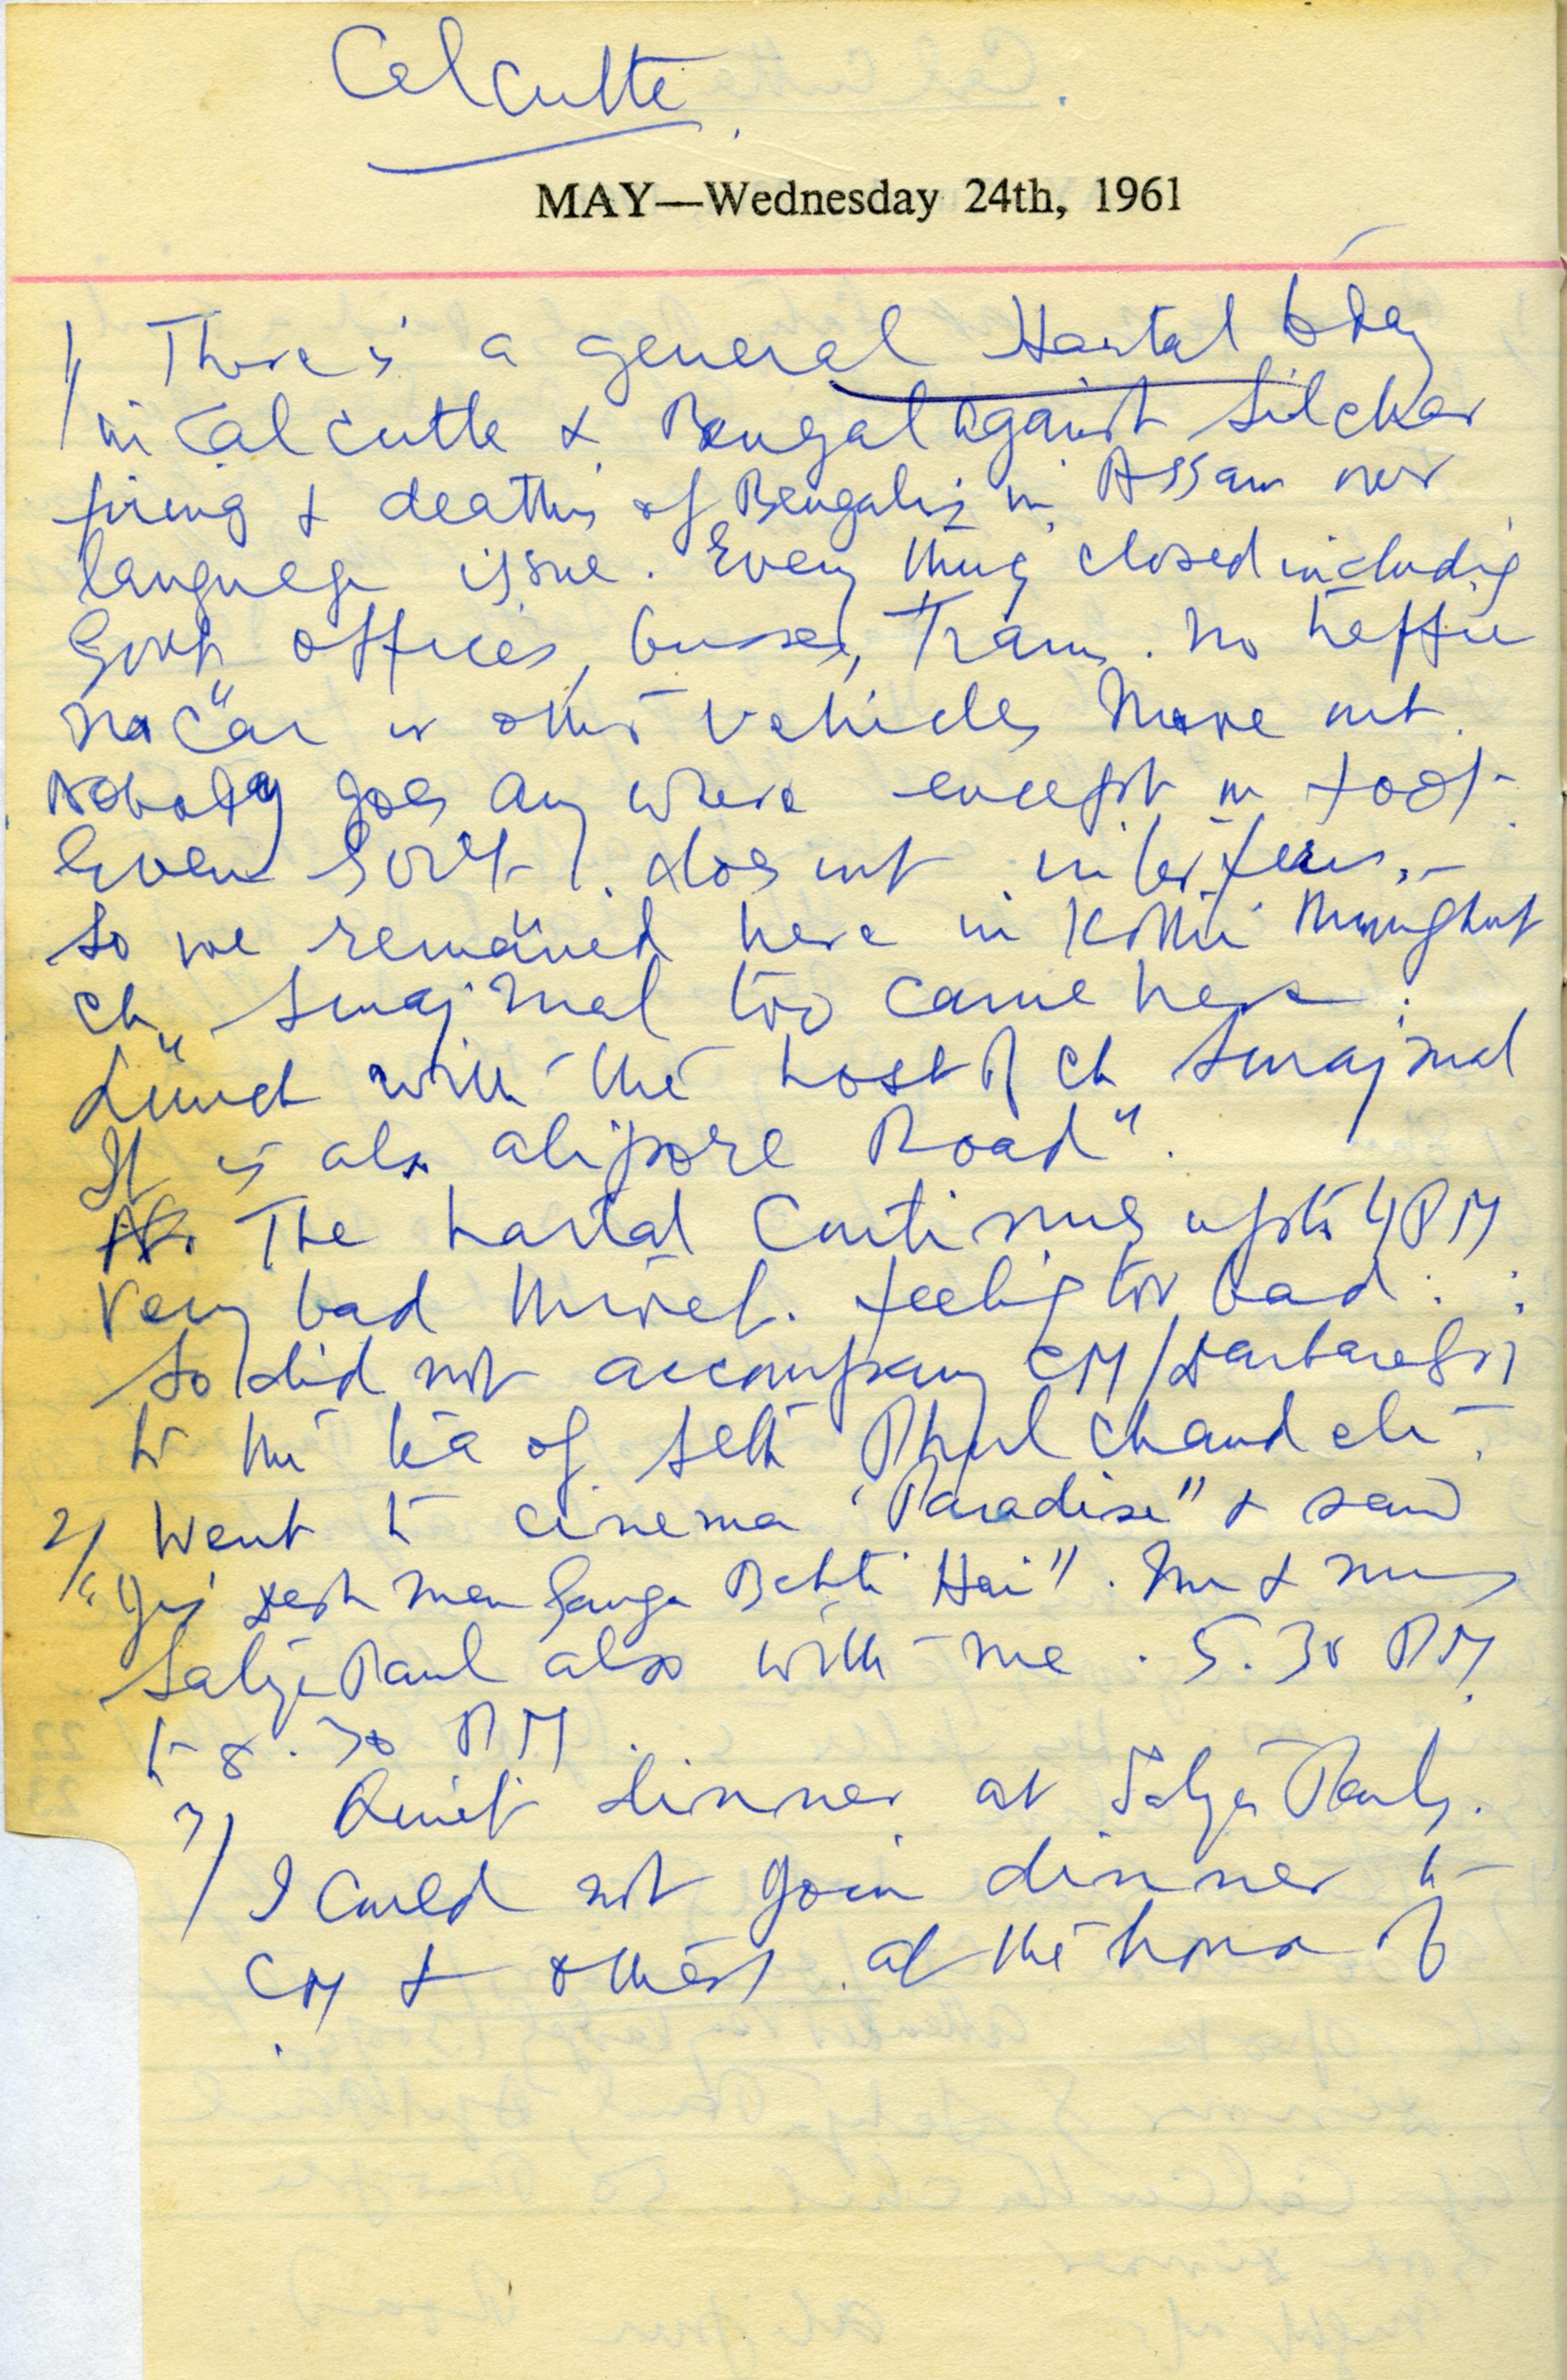 Calcutta
MAY—Wednesday 24th, 1961
1/ There is a general Hartal today
in Calcutta & Bengal against Silchar
firing & deaths of Bengalis in Assam over
language issue. Every thing closed including
Govt offices, busses, Trams. No traffic
No Car or other vehicles move out.
Nobody goes any where except on foot.
Even Govt. does not interfere.
So we remained here in Kothi throughout
Ch. Suraj Mal too came here.
Lunch with the host of Ch Suraj Mal
It is also Alipore Road".
The hartal continues upto 4 PM
Very bad throat. Feeling too bad.
So did not accompany CM/
to the tea of Seth Phul Chand etc.
2/ Went to cinema "Paradise" & saw
"Jis Desh Men Ganga Behti Hai". Mr & Mrs
Satya Paul also with me. 5.30 PM
to 8.30 PM.
3/ Quiet dinner at Satya Pauls.
I could not join dinner to
CM & others at the house of